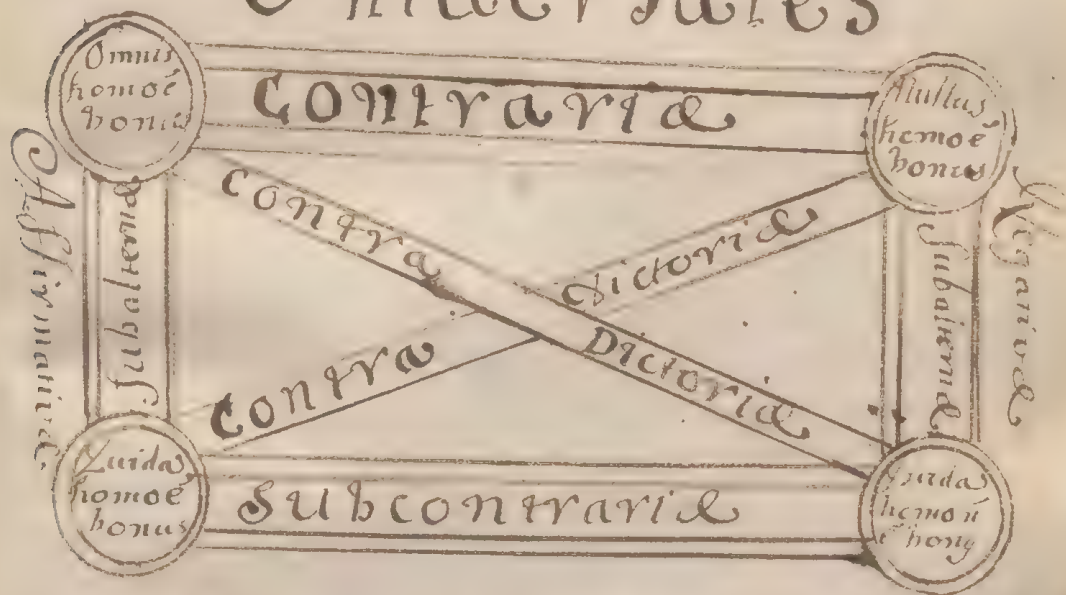 Universales
Omnis
homo ē
bonus
Contrariæ
Nullus
homo ē
bonus
Affirmativæ
Subalternæ
Contra
Dictoriæ
Contra
dictoriæ
Subalternæ
Negativæ
Quida
homo ē
bonus
Subcontrariæ
Quida
homo n̄
ē bonꝰ